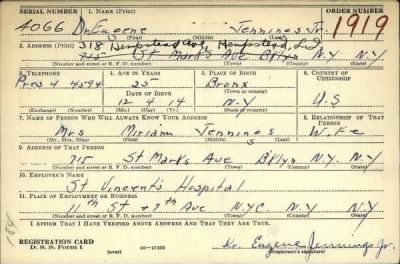 SERIAL NUMBER 1. NAME (Print) ORDER NUMBER
4066 Dr Eugene Jennings Jr. 1919
(First) (Middle) (Last)
2. ADDRESS (Print) 318 Hempstead, L.I.
715 St Mark's Ave Bklyn N.Y N.Y
(Number and street or R. F. D. number) (Town) (County) (State)
3. TELEPHONE 4. AGE IN YEARS 5. PLACE OF BIRTH 6. COUNTRY OF CITIZENSHIP
Pres 4 4594 25 Bronx
DATE OF BIRTH (Town or county)
12 4 14 N.Y U.S
(Exchange) (No.) (Mo.) (Day) (Yr.) (State or country)
7. NAME OF PERSON WHO WILL ALWAYS KNOW YOUR ADDRESS 8. RELATIONSHIP OF THAT PERSON
Mrs Miriam Jennings Wife
(Mr., Mrs., Miss) (First) (Middle) (Last)
9. ADDRESS OF THAT PERSON
715 St Mark's Ave B'klyn N.Y. N.Y
(Number and street or R. F. D. number) (Town) (County) (State)
10. EMPLOYER'S NAME
St Vincent's Hospital
11. PLACE OF EMPLOYMENT OR BUSINESS
11th St + 7th Ave N.Y.C. N.Y. N.Y
(Number and street or R. F. D. number) (Town) (County) (State)
I AFFIRM THAT I HAVE VERIFIED ABOVE ANSWERS AND THAT THEY ARE TRUE.
REGISTRATION CARD
D. S. S. FORM 1 (over) 16—17105 Dr. Eugene Jennings Jr.
(Registrant's signature)